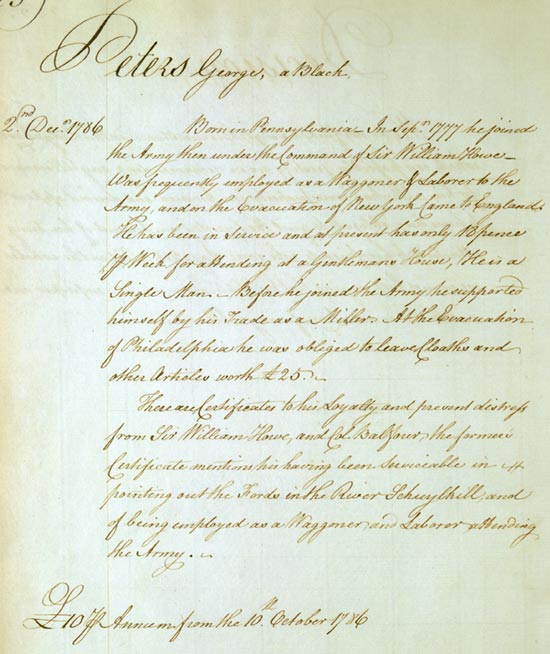 Peters George, a Black.
2nd Decr. 1786
Born in Pennsylvania - In Sepr. 1777 he joined
the Army then under the Command of Sir William Howe -
Was frequently employed as a Waggoner & Laborer to the
Army, and on the Evacuation of New York Came to England.
He has been in Service and at present has only 18 pence
℔ Week for attending at a Gentlemans House, He is a
Single Man. - Before he joined the Army he supported
himself by his Trade as a Miller. At the Evacuation
of Philadelphia he was obliged to leave Cloaths and
other Articles worth £25. -
There are Certificates to his Loyalty and present distress
from Sir William Howe, and Col. Balfour, the former
Certificate mentions his having been Serviceable in
pointing out the Fords in the River Schuylkill, and
of being employed as a Waggoner and Laborer attending
the Army. -
£10 ℔ Annum from the 10th. October 1786